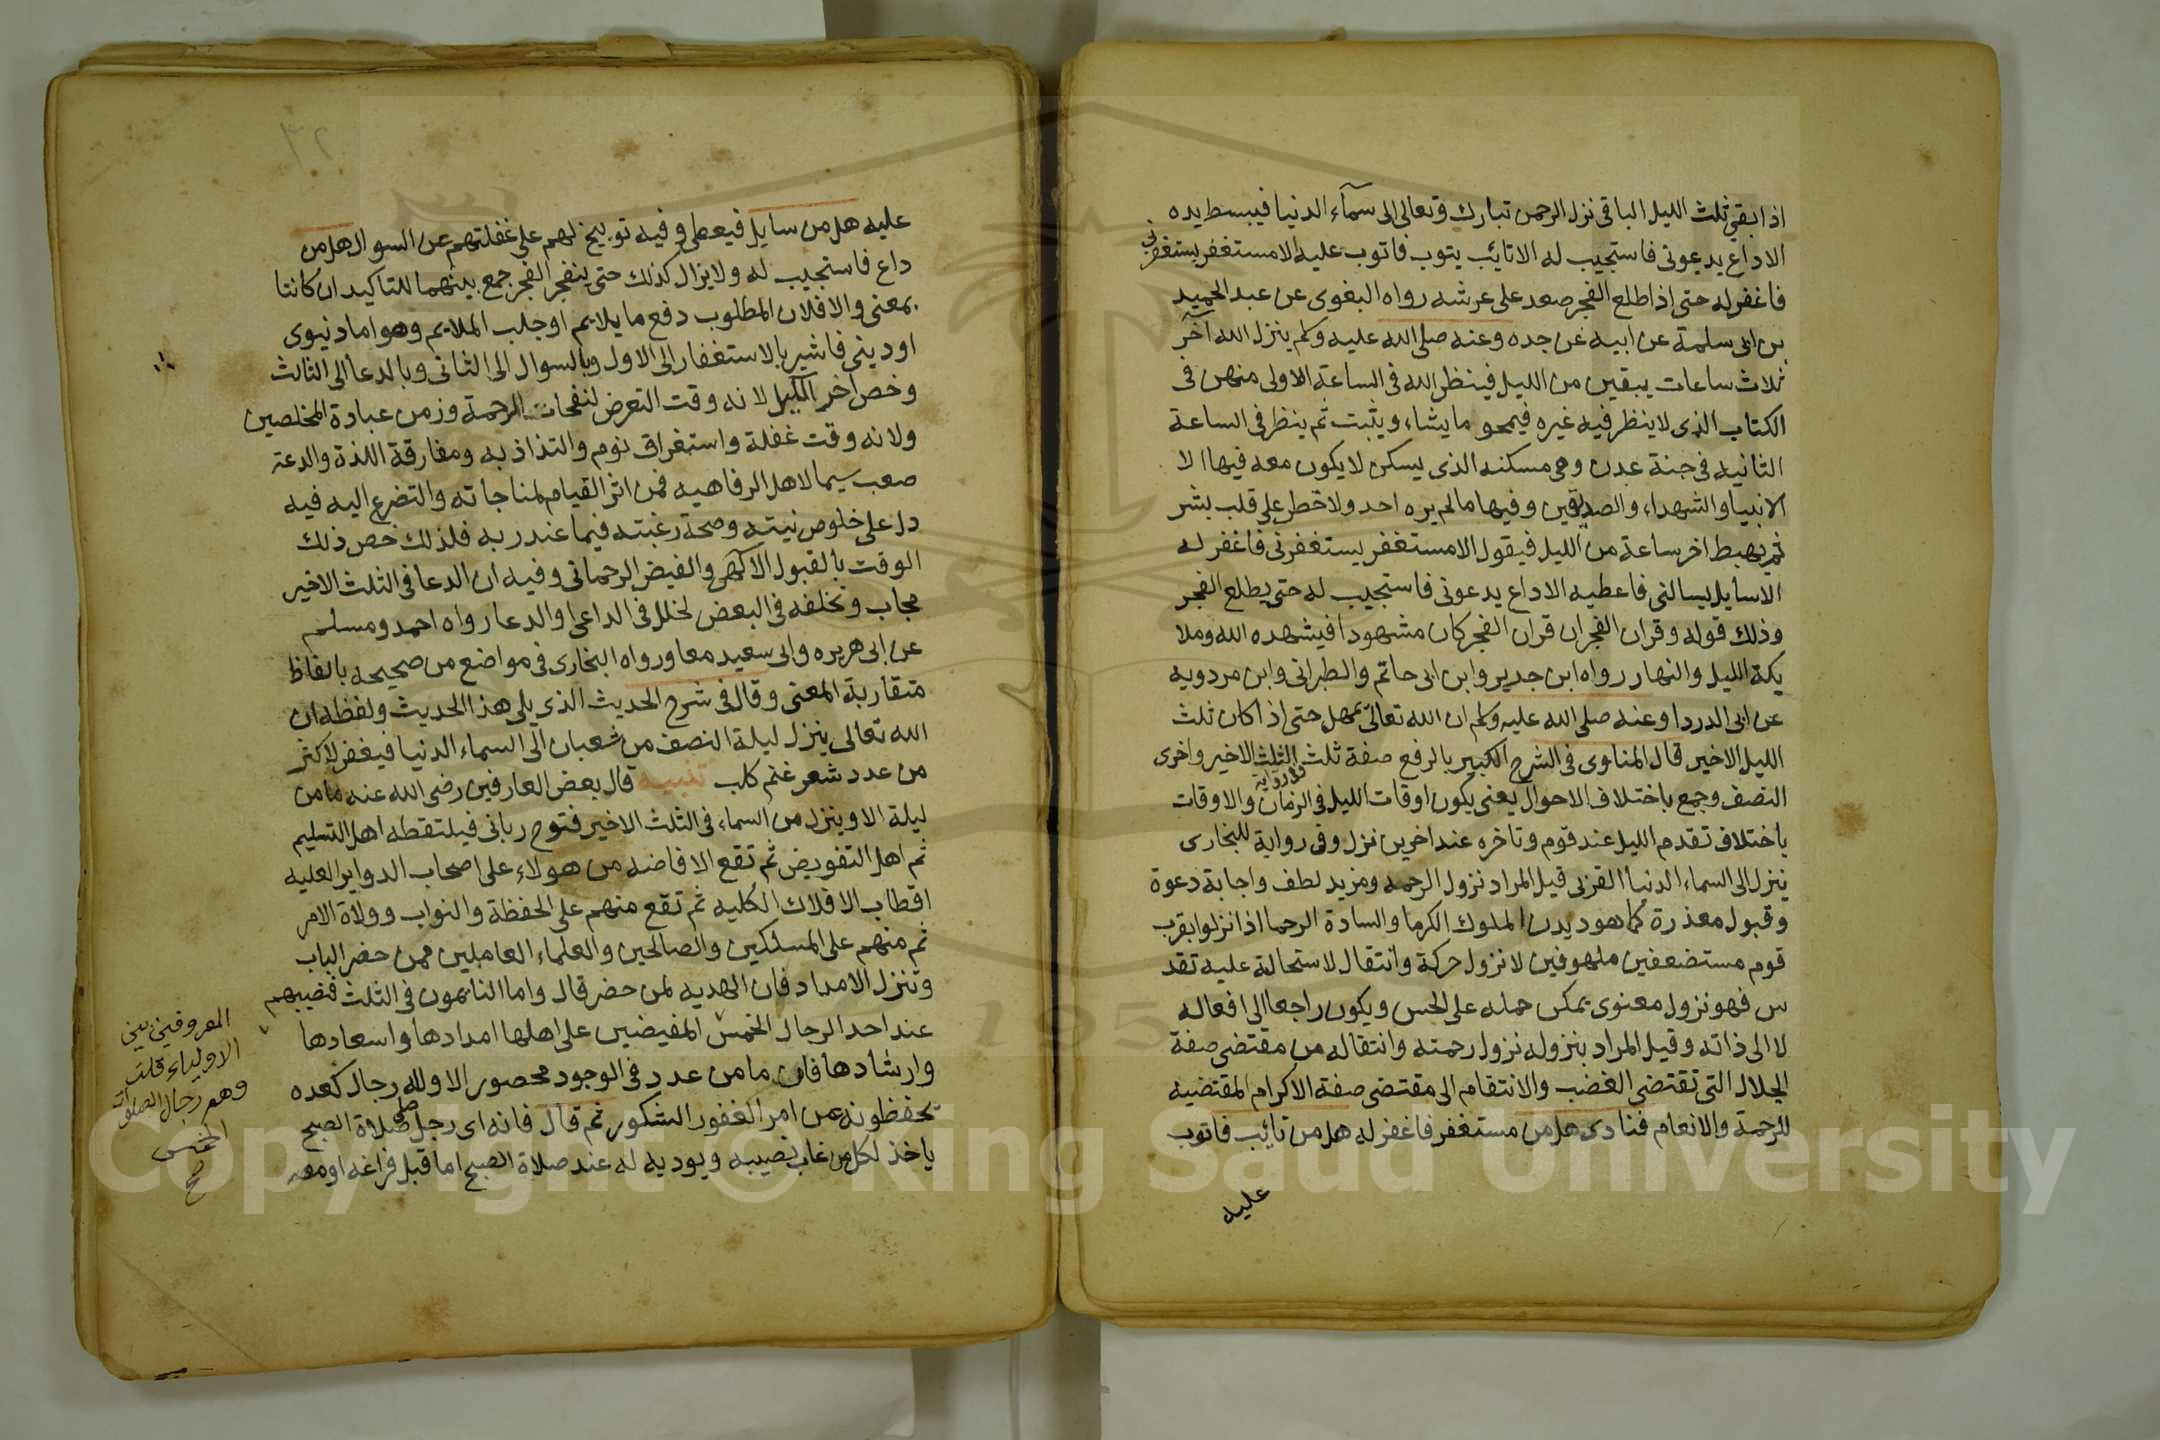 اذا بقي ثلث الليل الباقى نزل الرحمن تبارك وتعالى الى سمآء الدنيا فيبسط يده
الا داع يدعونى فاستجيب له الا تائب يتوب فاتوب عليه الا مستغفر يستغفرنى
فاغفر له حتى اذا طلع الفجر صعد على عرشه رواه البغوى عن عبد الحميد
بن ابى سلمة عن ابيه عن جده وعنه صلى الله عليه وسلم ينزل الله آخر
ثلاث ساعات يبقين من الليل فينظر الله فى الساعة الاولى منهن فى
الكتاب الذى لا ينظر فيه غيره فيمحو ما يشاء ويثبت ثم ينظر فى الساعة
الثانيه فى جنة عدن وهى مسكنه الذى يسكن لا يكون معه فيها الا
الانبيا والشهداء والصديقين وفيها مالم يره احد ولا خطر على قلب بشر
ثم يهبط اخر ساعة من الليل فيقول الا مستغفر يستغفرنى فاغفر له
الا سايل يسالنى فاعطيه الا داع يدعونى فاستجيب له حتى يطلع الفجر
وذلك قوله وقران الفجر ان قران الفجر كان مشهودا فيشهده الله وملا
يكة الليل والنهار رواه ابن جرير وابن ابى حاتم والطبرانى وابن مردويه
عن ابى الدردا وعنه صلى الله عليه وسلم ان الله تعالى يمهل حتى اذا كان ثلث
الليل الاخير قال المناوى فى الشرح الكبير بالرفع صفة ثلث الثلث الاخير واخرى
وفى رواية
النصف وجمع باختلاف الاحوال يعنى يكون اوقات الليل فى الزمان والاوقات
باختلاف تقدم الليل عند قوم وتاخره عند اخرين نزل وفى رواية للبخارى
ينزل الى السماء الدنيا القربى قيل المراد نزول الرحمه ومزيد لطف واجابة دعوة
وقبول معذرة كما هو ديدن الملوك الكرما والسادة الرحما اذا نزلوا بقرب
قوم مستضعفين ملهوفين لا نزول حركة وانتقال لاستحالة عليه تقد
س فهو نزول معنوى يمكن حمله على الحس ويكون راجعا الى افعاله
لا الى ذاته وقيل المراد بنزوله نزول رحمته وانتقاله من مقتضى صفة
الجلال التى تقتضى الغضب والانتقام الى مقتضى صفة الاكرام المقتضيه
للرحمة والانعام فنادى هل من مستغفر فاغفر له هل من تائب فاتوب
عليه
٣٢
عليه هل من سايل فيعطى وفيه توبيخ لهم على غفلتهم عن السوال هل من
داع فاستجيب له ولا يزال كذلك حتى ينفجر الفجر جمع بينهما للتاكيد ان كانتا
بمعنى والا فلان المطلوب دفع ما يلايم او جلب الملايم وهو اما دنيوى
او دينى فاشير بالاستغفار الى الاول وبالسوال الى الثانى وبالدعا الى الثالث
وخص اخر الليل لانه وقت التعرض لنفحات الرحمة وزمن عبادة المخلصين
ولانه وقت غفلة واستغراق نوم والتذاذ به ومفارقة اللذة والدعة
صعب سيما لاهل الرفاهيه فمن اثر القيام لمناجاته والتضرع اليه فيه
دل على خلوص نيته وصحة رغبته فيما عند ربه فلذلك خص ذلك
الوقت بالقبول الالٰهى والفيض الرحمانى وفيه ان الدعا فى الثلث الاخير
مجاب وتخلفه فى البعض لخلل فى الداعى او الدعا رواه احمد ومسلم
عن ابى هريره وابى سعيد معا ورواه البخارى فى مواضع من صحيحه بالفاظ
متقاربة المعنى وقال فى شرح الحديث الذى يلى هذا الحديث ولفظه ان
الله تعالى ينزل ليلة النصف من شعبان الى السماء الدنيا فيغفر لاكثر
من عدد شعر غنم كلب تنبيه قال بعض العارفين رضى الله عنه ما من
ليلة الا وينزل من السماء فى الثلث الاخير فتوح ربانى فيلتقطه اهل التسليم
ثم اهل التفويض ثم تقع الافاضه من هولاء على اصحاب الدواير العليه
اقطاب الافلاك الكليه ثم تقع منهم على الحفظة والنواب وولاة الامر
ثم منهم على المسلكين والصالحين والعلماء العاملين ممن حضر الباب
وتنزل الامداد فان الهديه لمن حضر قال واما النايمون فى الثلث فنصيبهم
عند احد الرجال الخمس المفيضين على اهلها امدادها واسعادها
وارشادها فان ما من عدد فى الوجود محصور الا ولله رجال كعدده
يحفظونه عن امر الغفور الشكور ثم قال فانه اى رجل صلاة الصبح
ياخذ لكل من غاب نصيبه ويوديه له عند صلاة الصبح اما قبل فراغه او معه
المعروفين بين
الاولياء قلت
وهم رجال الصلوات
الخمس
صح